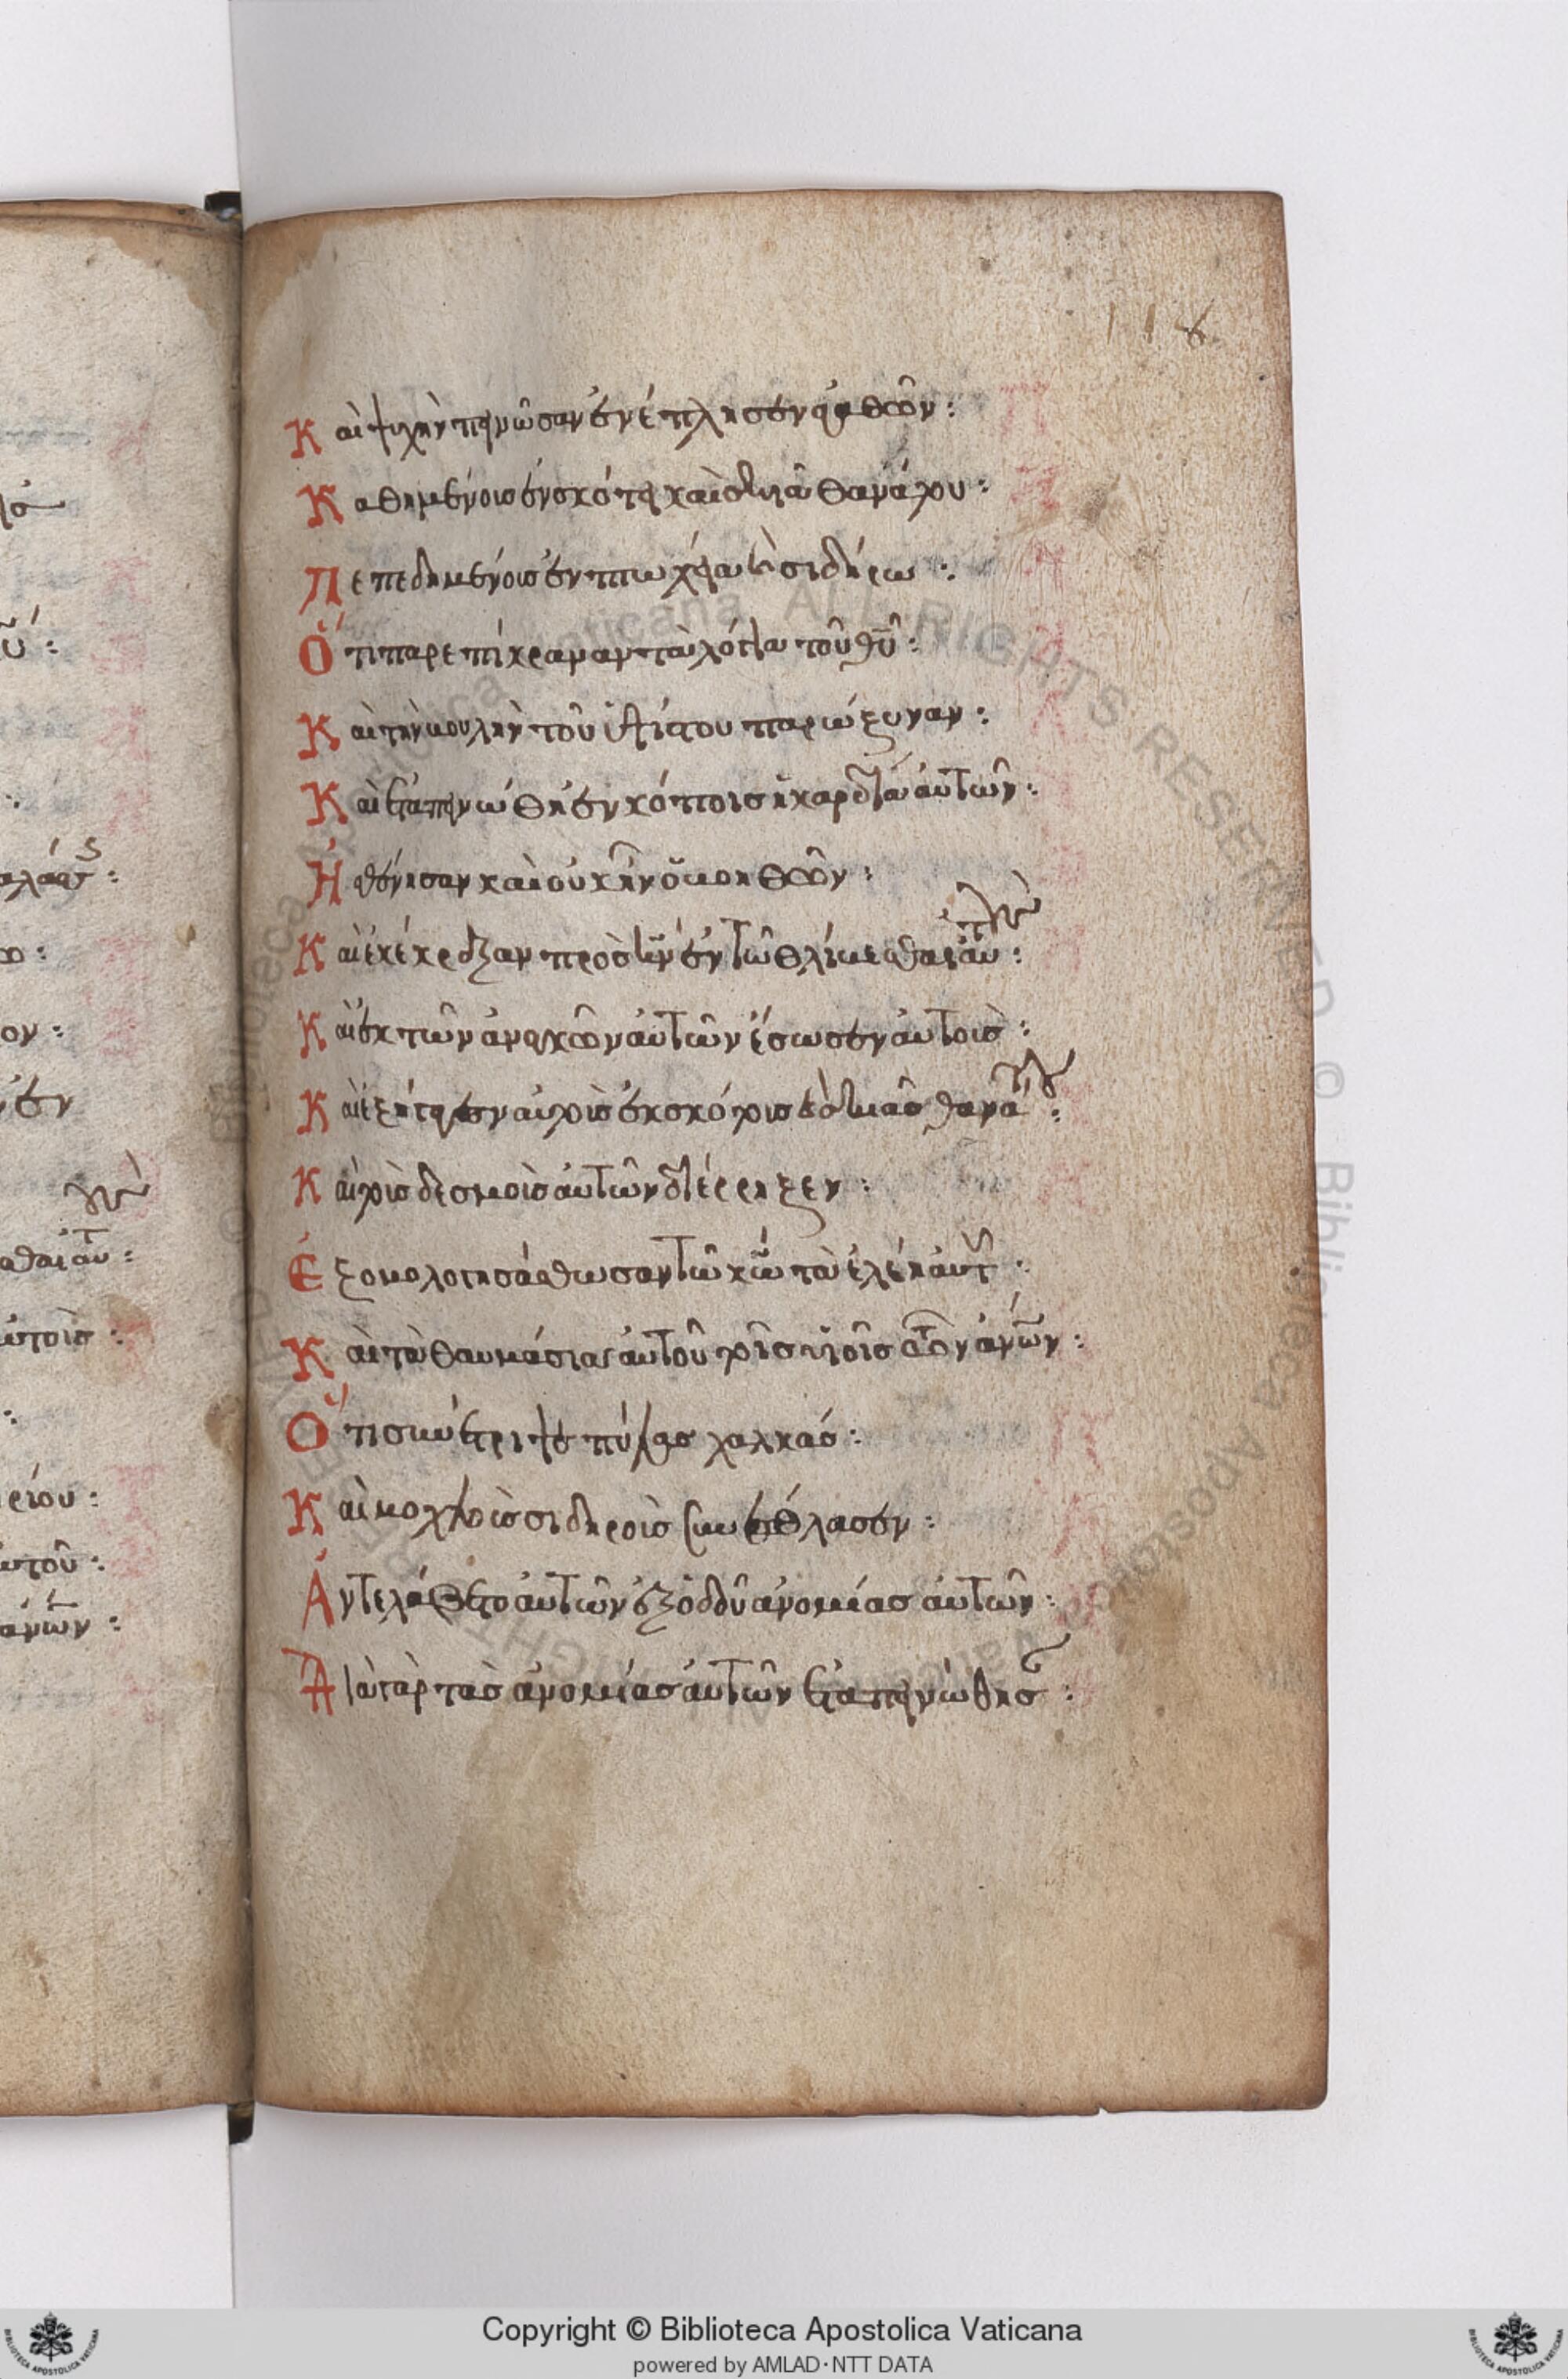 118
Καὶ ψυχὴν πεινῶσαν ἐνέπλησεν ἀγαθῶν :
Καθημένοις ἐν σκότει καὶ σκιᾷ θανάτου :
Πεπεδημένοις ἐν πτωχείᾳ καὶ σιδήρω :
Ὅτι παρεπίκραναν τὰ λόγια τοῦ θυ :
Καὶ τὴν βουλὴν τοῦ ὑψίστου παρώξυναν :
Καὶ ἐταπεινώθη ἐν κόποις ἡ καρδία αὐτῶν :
Ἠσθένησαν καὶ οὐκ ἦν ὁ βοηθῶν :
Καὶ ἐκέκραξαν πρὸς κν ἐν τῶ θλίβεσθαι αὐτούς :
Καὶ ἐκ τῶν ἀναγκῶν αὐτῶν ἔσωσεν αὐτοὺς :
Καὶ ἐξήγαγεν αὐτοὺς ἐκ σκότους καὶ σκιᾶς θανάτου :
Καὶ τοὺς δεσμοὺς αὐτῶν διέρρηξεν :
Ἐξομολογησάσθωσαν τῶ κω τὰ ἐλέη αὐτοῦ :
Καὶ τὰ θαυμάσια αὐτοῦ τοῖς υἱοῖς τῶν ἀνων :
Ὅτι συνέτριψε πύλας χαλκάς :
Καὶ μοχλοὺς σιδηροὺς συνέθλασεν :
Ἀντελάβετο αὐτῶν ἐξ ὁδοῦ ἀνομίας αὐτῶν :
Διὰ γὰρ τὰς ἀνομίας αὐτῶν ἐταπεινώθησαν :
Copyright © Biblioteca Apostolica Vaticana
powered by AMLAD·NTT DATA